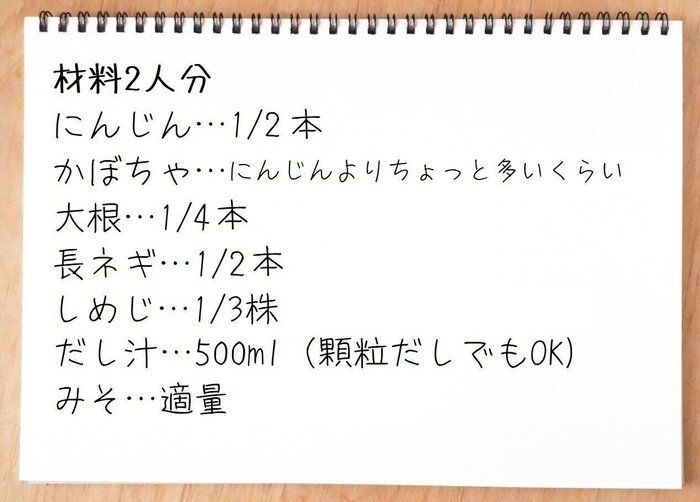 材料2人分
にんじん…1/2本
かぼちゃ…にんじんよりちょっと多いくらい
大根…1/4本
長ネギ…1/2本
しめじ…1/3株
だし汁…500ml (顆粒だしでもOK)
みそ…適量